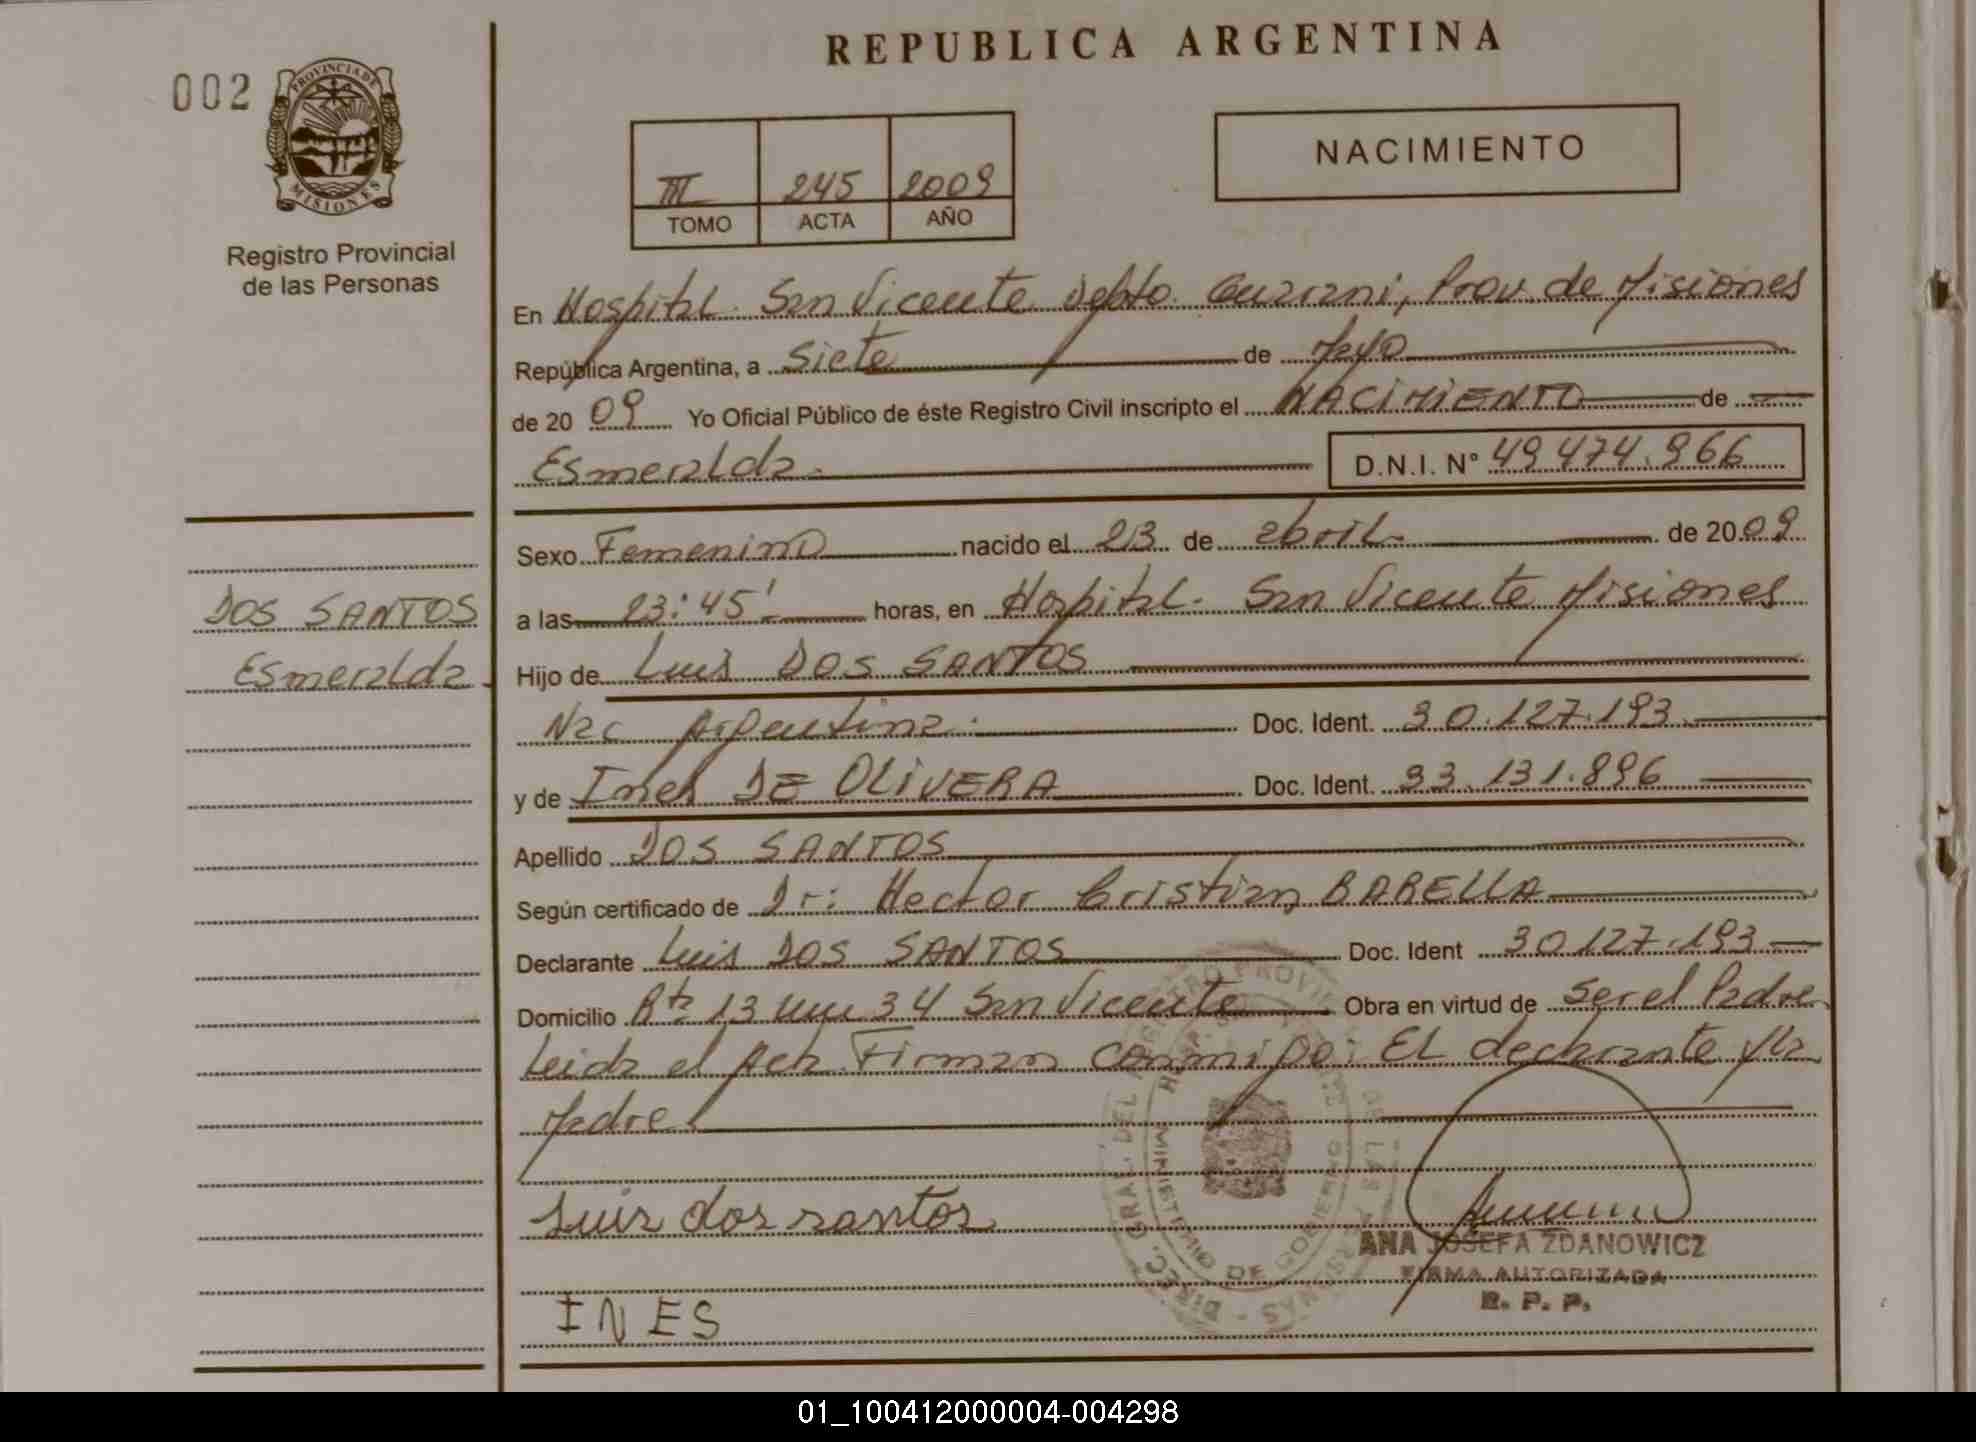 REPUBLICA ARGENTINA
002
PROVINCIA DE
MISIONES
Registro Provincial
de las Personas
III 245 2009
TOMO ACTA AÑO
NACIMIENTO
En Hospital. San Vicente Depto. Guarani, Prov. de Misiones
República Argentina, a Siete de Mayo
de 20 09 Yo Oficial Público de éste Registro Civil inscripto el NACIMIENTO de
Esmeralda D.N.I. N° 49.474.966
Sexo Femenino nacido el 23 de abril de 2009
a las 23:45' horas, en Hospital. San Vicente Misiones
Hijo de Luis DOS SANTOS
Nac Argentina. Doc. Ident. 30.127.193
y de Ines DE OLIVERA Doc. Ident. 33.131.896
Apellido DOS SANTOS
Según certificado de Dr: Hector Cristian BARELLA
Declarante Luis DOS SANTOS Doc. Ident 30.127.193
Domicilio Rta 13 34 San Vicente Obra en virtud de ser el Padre
Leida el Acta Firman conmigo: EL declarante y la
Madre
Luis dos santos
INES
DOS SANTOS
Esmeralda
DIREC. GRAL. DEL REGISTRO PROVINCIAL DE LAS PERSONAS
MINISTERIO DE GOBIERNO
ANA JOSEFA ZDANOWICZ
FIRMA AUTORIZADA
R. P. P.
01_100412000004-004298